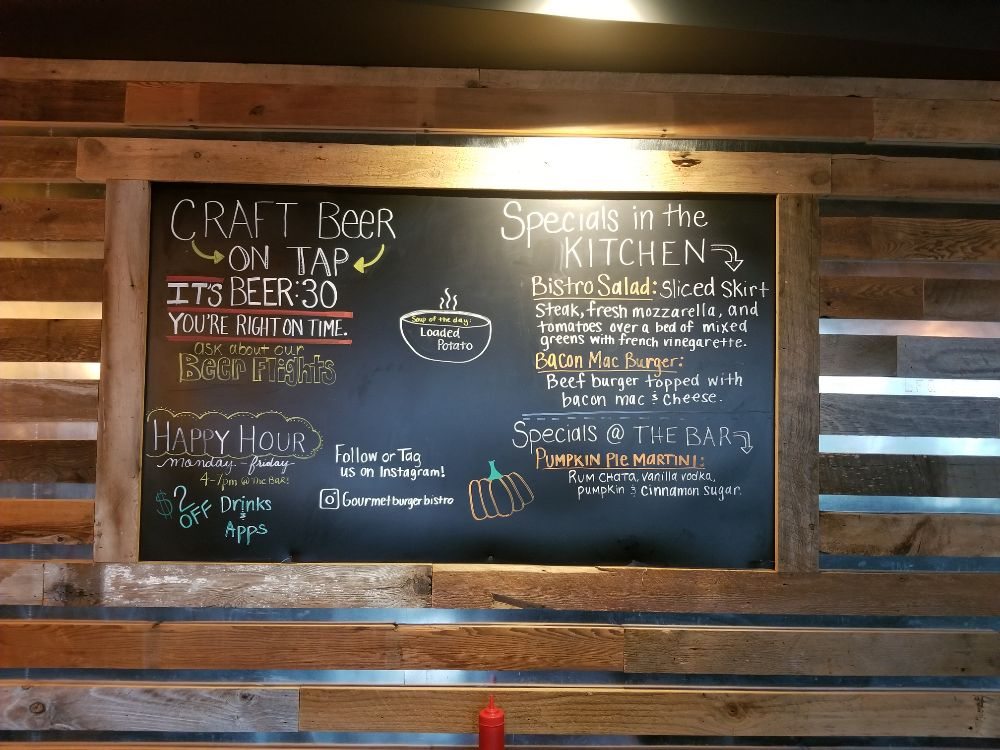 CRAFT Beer
ON TAP
IT'S BEER:30
YOU'RE RIGHT ON TIME.
ask about our
Beer Flights
HAPPY HOUR
monday - friday
4-7pm @ THE BAR!
$2 OFF Drinks
& Apps
Soup of the day:
Loaded
Potato
Follow or Tag
us on Instagram!
Gourmetburgerbistro
Specials in the
KITCHEN
Bistro Salad: Sliced Skirt
Steak, fresh mozzarella, and
tomatoes over a bed of mixed
greens with french vinegarette.
Bacon Mac Burger:
Beef burger topped with
bacon mac & cheese.
Specials @ THE BAR
PUMPKIN PIE MARTINI:
RUM CHATA, vanilla vodka,
pumpkin & cinnamon sugar.